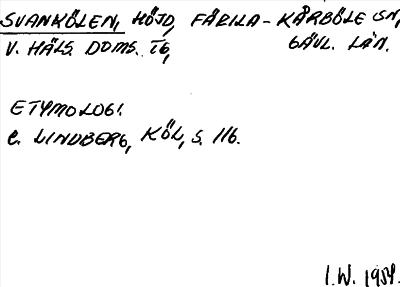 SVANKÖLEN, HÖJD, FÄRILA-KÅRBÖLE SN,
V. HÄLS. DOMS. TG, GÄVL. LÄN.
ETYMOLOGI.
C. LINDBERG, KÖL, S. 116.
I.W. 1954.